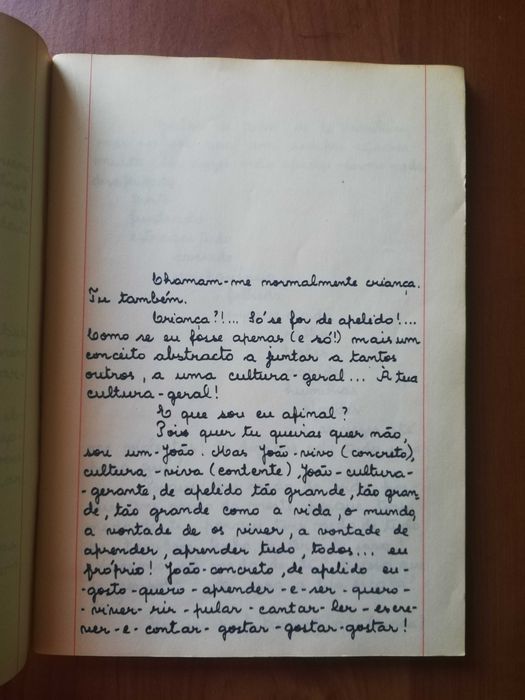 Chamam-me normalmente criança.
Tu também.
Criança?!... Só se for de apelido!...
Como se eu fosse apenas (e só!) mais um
conceito abstracto a juntar a tantos
outros, a uma cultura-geral... À tua
cultura-geral!
E que sou eu afinal?
Pois quer tu queiras quer não,
sou um-João. Mas João-vivo (concreto),
cultura-viva (contente). João-cultura-
-gerante, de apelido tão grande, tão gran
de, tão grande como a vida, o mundo,
a vontade de os viver, a vontade de
aprender, aprender tudo, todos... eu
próprio! João-concreto, de apelido eu-
-gosto-quero-aprender-e-ser-quero-
-viver-rir-pular-cantar-ler-escre-
ver-e-contar-gostar-gostar-gostar!